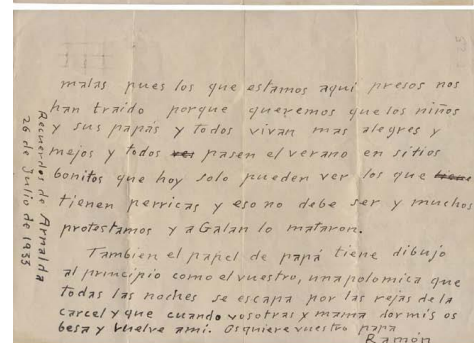 malas pues los que estamos aqui presos nos
han traido porque queremos que los niños
y sus papás y todos vivan mas alegres y
mejos y todos pasen el verano en sitios
bonitos que hoy solo pueden ver los que
tienen perricas y eso no debe ser y muchos
protestamos y a Galan lo mataron.
Tambien el papel de papá tiene dibujo
al principio como el vuestro, una polomica que
todas las noches se escapa por las rejas de la
carcel y que cuando vosotras y mama dormis os
besa y vuelve ami. Os quiere vuestro papa
Ramón
Recuerdos de Arnalda
26 de Julio de 1935